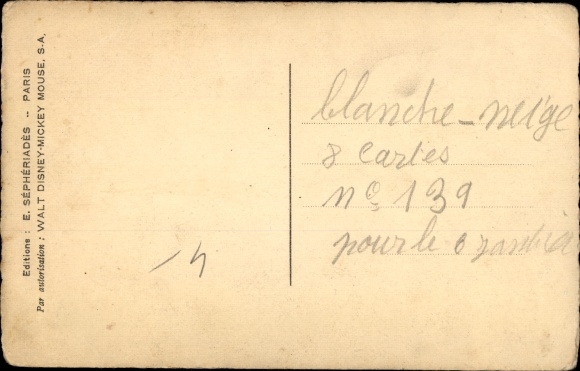 Editions : E. SÉPHÉRIADÈS -- PARIS
Par autorisation : WALT DISNEY-MICKEY MOUSE, S-A.
blanche-neige
8 cartes
nº 139
pour le